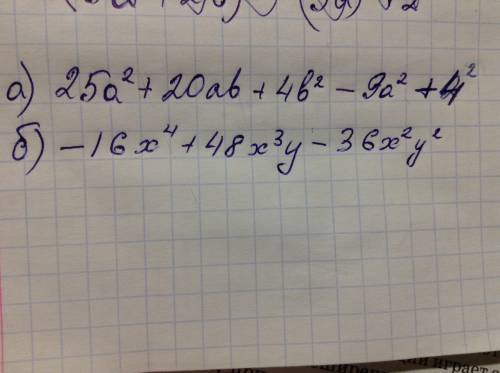 а) 25a² + 20ab + 4b² − 9a² + 4²
б) −16x⁴ + 48x³y − 36x²y²